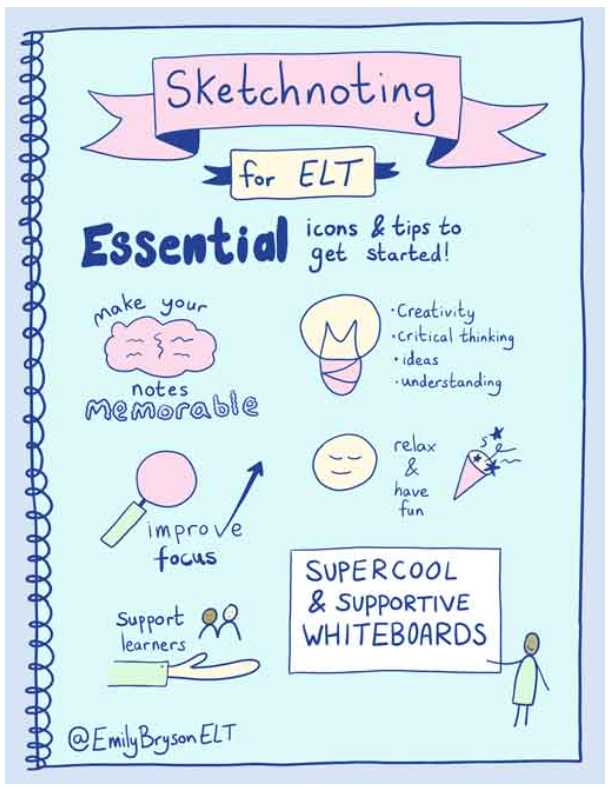 Sketchnoting
for ELT
Essential icons & tips to
get started!
make your
notes
MEMORABLE
• Creativity
• critical thinking
• ideas
• understanding
improve
focus
relax
&
have
fun
Support
learners
SUPERCOOL
& SUPPORTIVE
WHITEBOARDS
@EmilyBrysonELT